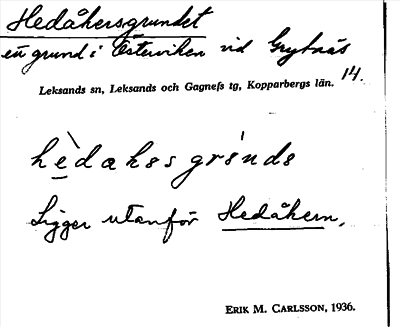 Hedåhersgrundet
en grund i Österviken vid Grytnäs
14.
Leksands sn, Leksands och Gagnefs tg, Kopparbergs län.
hèdahssgrìnde
Ligger utanför Hedåhern.
ERIK M. CARLSSON, 1936.